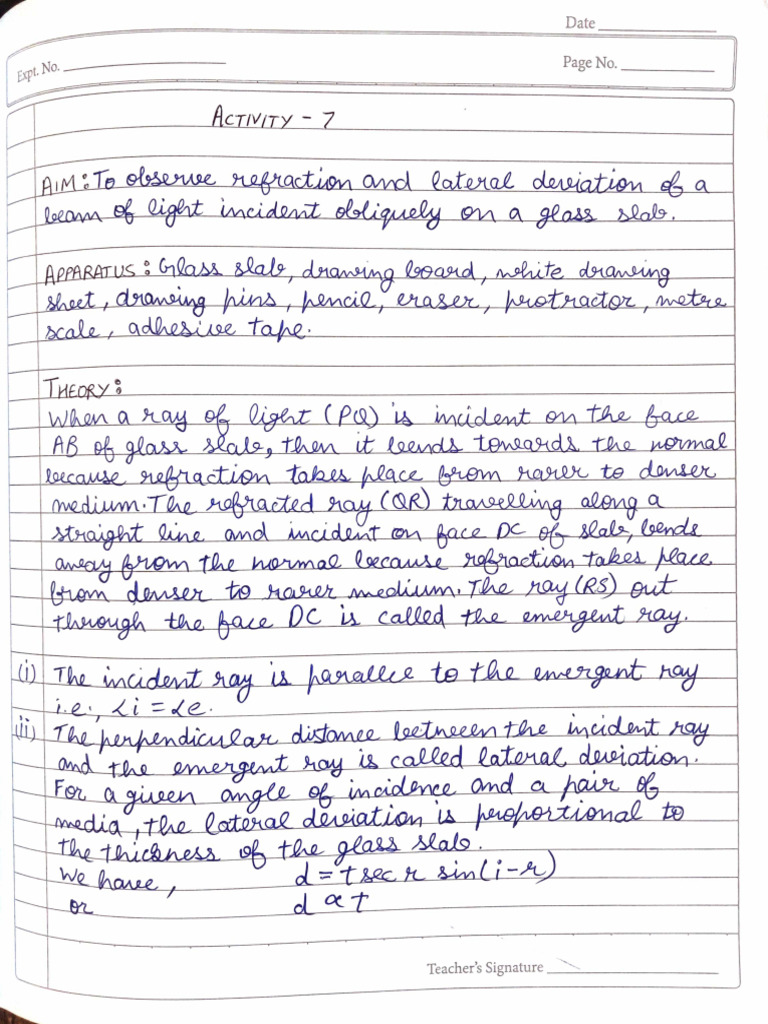 Date
Expt. No.
Page No.
ACTIVITY - 7
AIM: To observe refraction and lateral deviation of a
beam of light incident obliquely on a glass slab.
APPARATUS: Glass slab, drawing board, white drawing
sheet, drawing pins, pencil, eraser, protractor, metre
scale, adhesive tape.
THEORY:
When a ray of light (PQ) is incident on the face
AB of glass slab, then it bends towards the normal
because refraction takes place from rarer to denser
medium. The refracted ray (QR) travelling along a
straight line and incident on face DC of slab, bends
away from the normal because refraction takes place
from denser to rarer medium. The ray (RS) out
through the face DC is called the emergent ray.
(i) The incident ray is parallel to the emergent ray
i.e., ∠i = ∠e.
(ii) The perpendicular distance between the incident ray
and the emergent ray is called lateral deviation.
For a given angle of incidence and a pair of
media, the lateral deviation is proportional to
the thickness of the glass slab.
We have, d = t sec r sin(i-r)
or d ∝ t
Teacher's Signature